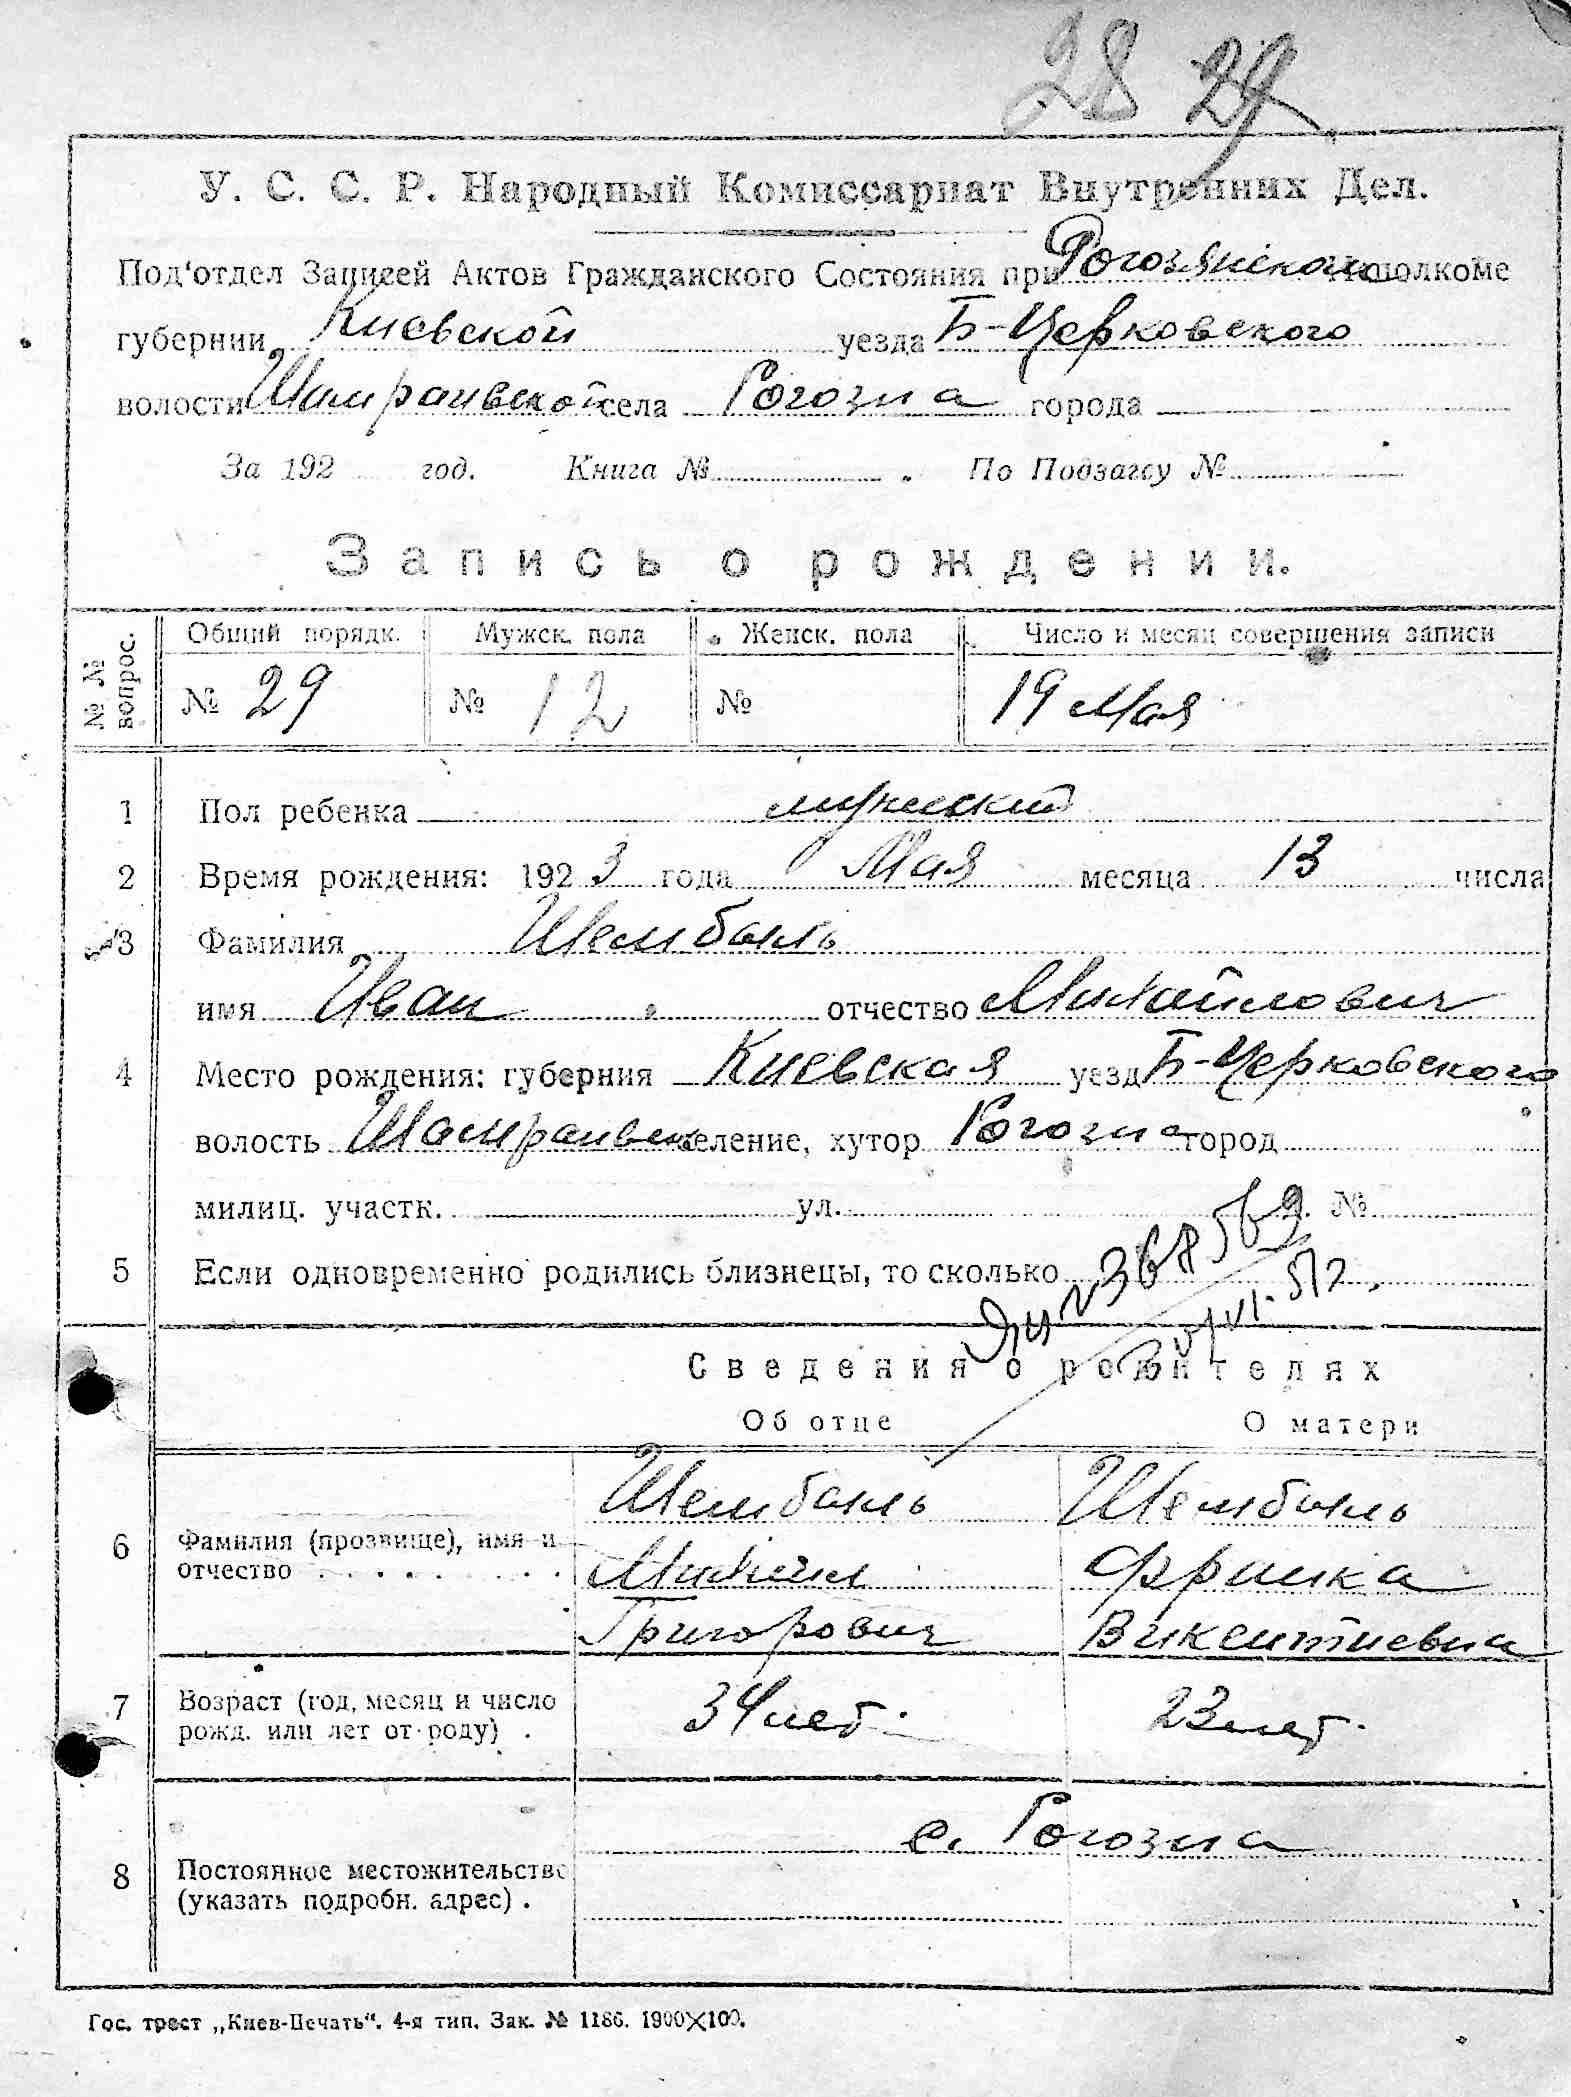 28 29
У. С. С. Р. Народный Комиссариат Внутренних Дел.
Под'отдел Записей Актов Гражданского Состояния при Рогозянском Исполкоме
губернии Киевской уезда Б-Церковского
волости Шамраивской села Рогозна города
За 192 год. Книга № По Подзагсу №
Запись о рождении.
№ № вопрос.
Общий порядк. Мужск. пола Женск. пола Число и месяц совершения записи
№ 29 № 12 № 19 Мая
1 Пол ребенка мужеский
2 Время рождения: 1923 года Мая месяца 13 числа
3 Фамилия Шембель
имя Иван отчество Михайлович
4 Место рождения: губерния Киевская уезд Б-Церковского
волость Шамраивск селение, хутор Рогозна город
милиц. участк. ул. д. №
5 Если одновременно родились близнецы, то сколько
368569
Сведения о родителях
Об отце О матери
Шембель Шембель
6 Фамилия (прозвище), имя и отчество Михаил Франка
Григорович Викентиевна
7 Возраст (год, месяц и число рожд. или лет от роду) 34 лет 23 лет.
с. Рогозна
8 Постоянное местожительство
(указать подробн. адрес).
Гос. трест „Киев-Печать“. 4-я тип. Зак. № 1186. 1900×100.